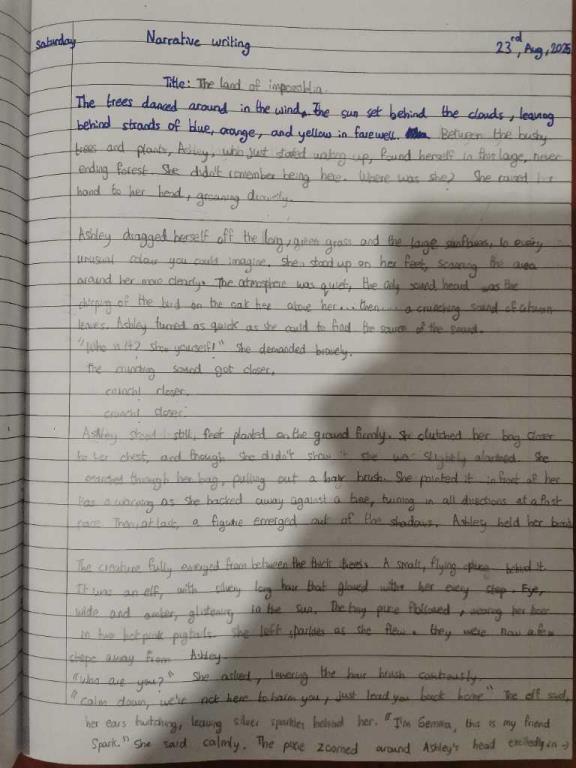 Saturday Narrative writing 23rd, Aug, 2025
Title: The land of impossiblia.
The trees danced around in the wind. The sun set behind the clouds, leaving
behind strands of blue, orange, and yellow in farewell. Between the bushy
trees and plants, Ashley, who just stated waking up, found herself in this large, never
ending forest. She didn't remember being here. Where was she? She raised her
hand to her head, groaning
Ashley dragged herself off the long, green grass and the large sunflowers, in every
unusual colour you could imagine. She stood up on her feet, scanning the area
around her more clearly. The atmosphere was quiet, the only sound heard was the
chirping of the bird on the oak tree above her... then... a crunching sound of
leaves. Ashley turned as quick as she could to find the source of the sound.
"Who is it? Show yourself!" She demanded bravely.
The sound got closer,
crunch! closer.
crunch! closer.
Ashley stood still, feet planted on the ground firmly. She clutched her bag closer
to her chest, and though she didn't show it she was slightly alarmed. She
searched through her bag, pulling out a hair brush. She pointed it infront of her
as a warning as she backed away against a tree, turning in all directions at a fast
pace. Then, at last, a figure emerged out of the shadows. Ashley held her
The creature fully emerged from between the thick trees. A small, flying pixie behind it.
It was an elf, with silvery long hair that glowed with her every step. Eye,
wide and amber, glistening in the sun. The tiny pixie followed, wearing her hair
in two hot pink pigtails. She left sparkles as she flew. they were now a few
steps away from Ashley.
"Who are you?" She asked, lowering the hair brush cautiously.
"Calm down, we're not here to harm you, just lead you back home" The elf said,
her ears twitching, leaving silver sparkles behind her. "I'm Gemma, this is my friend
Spark." She said calmly. The pixie zoomed around Ashley's head excitedly in →